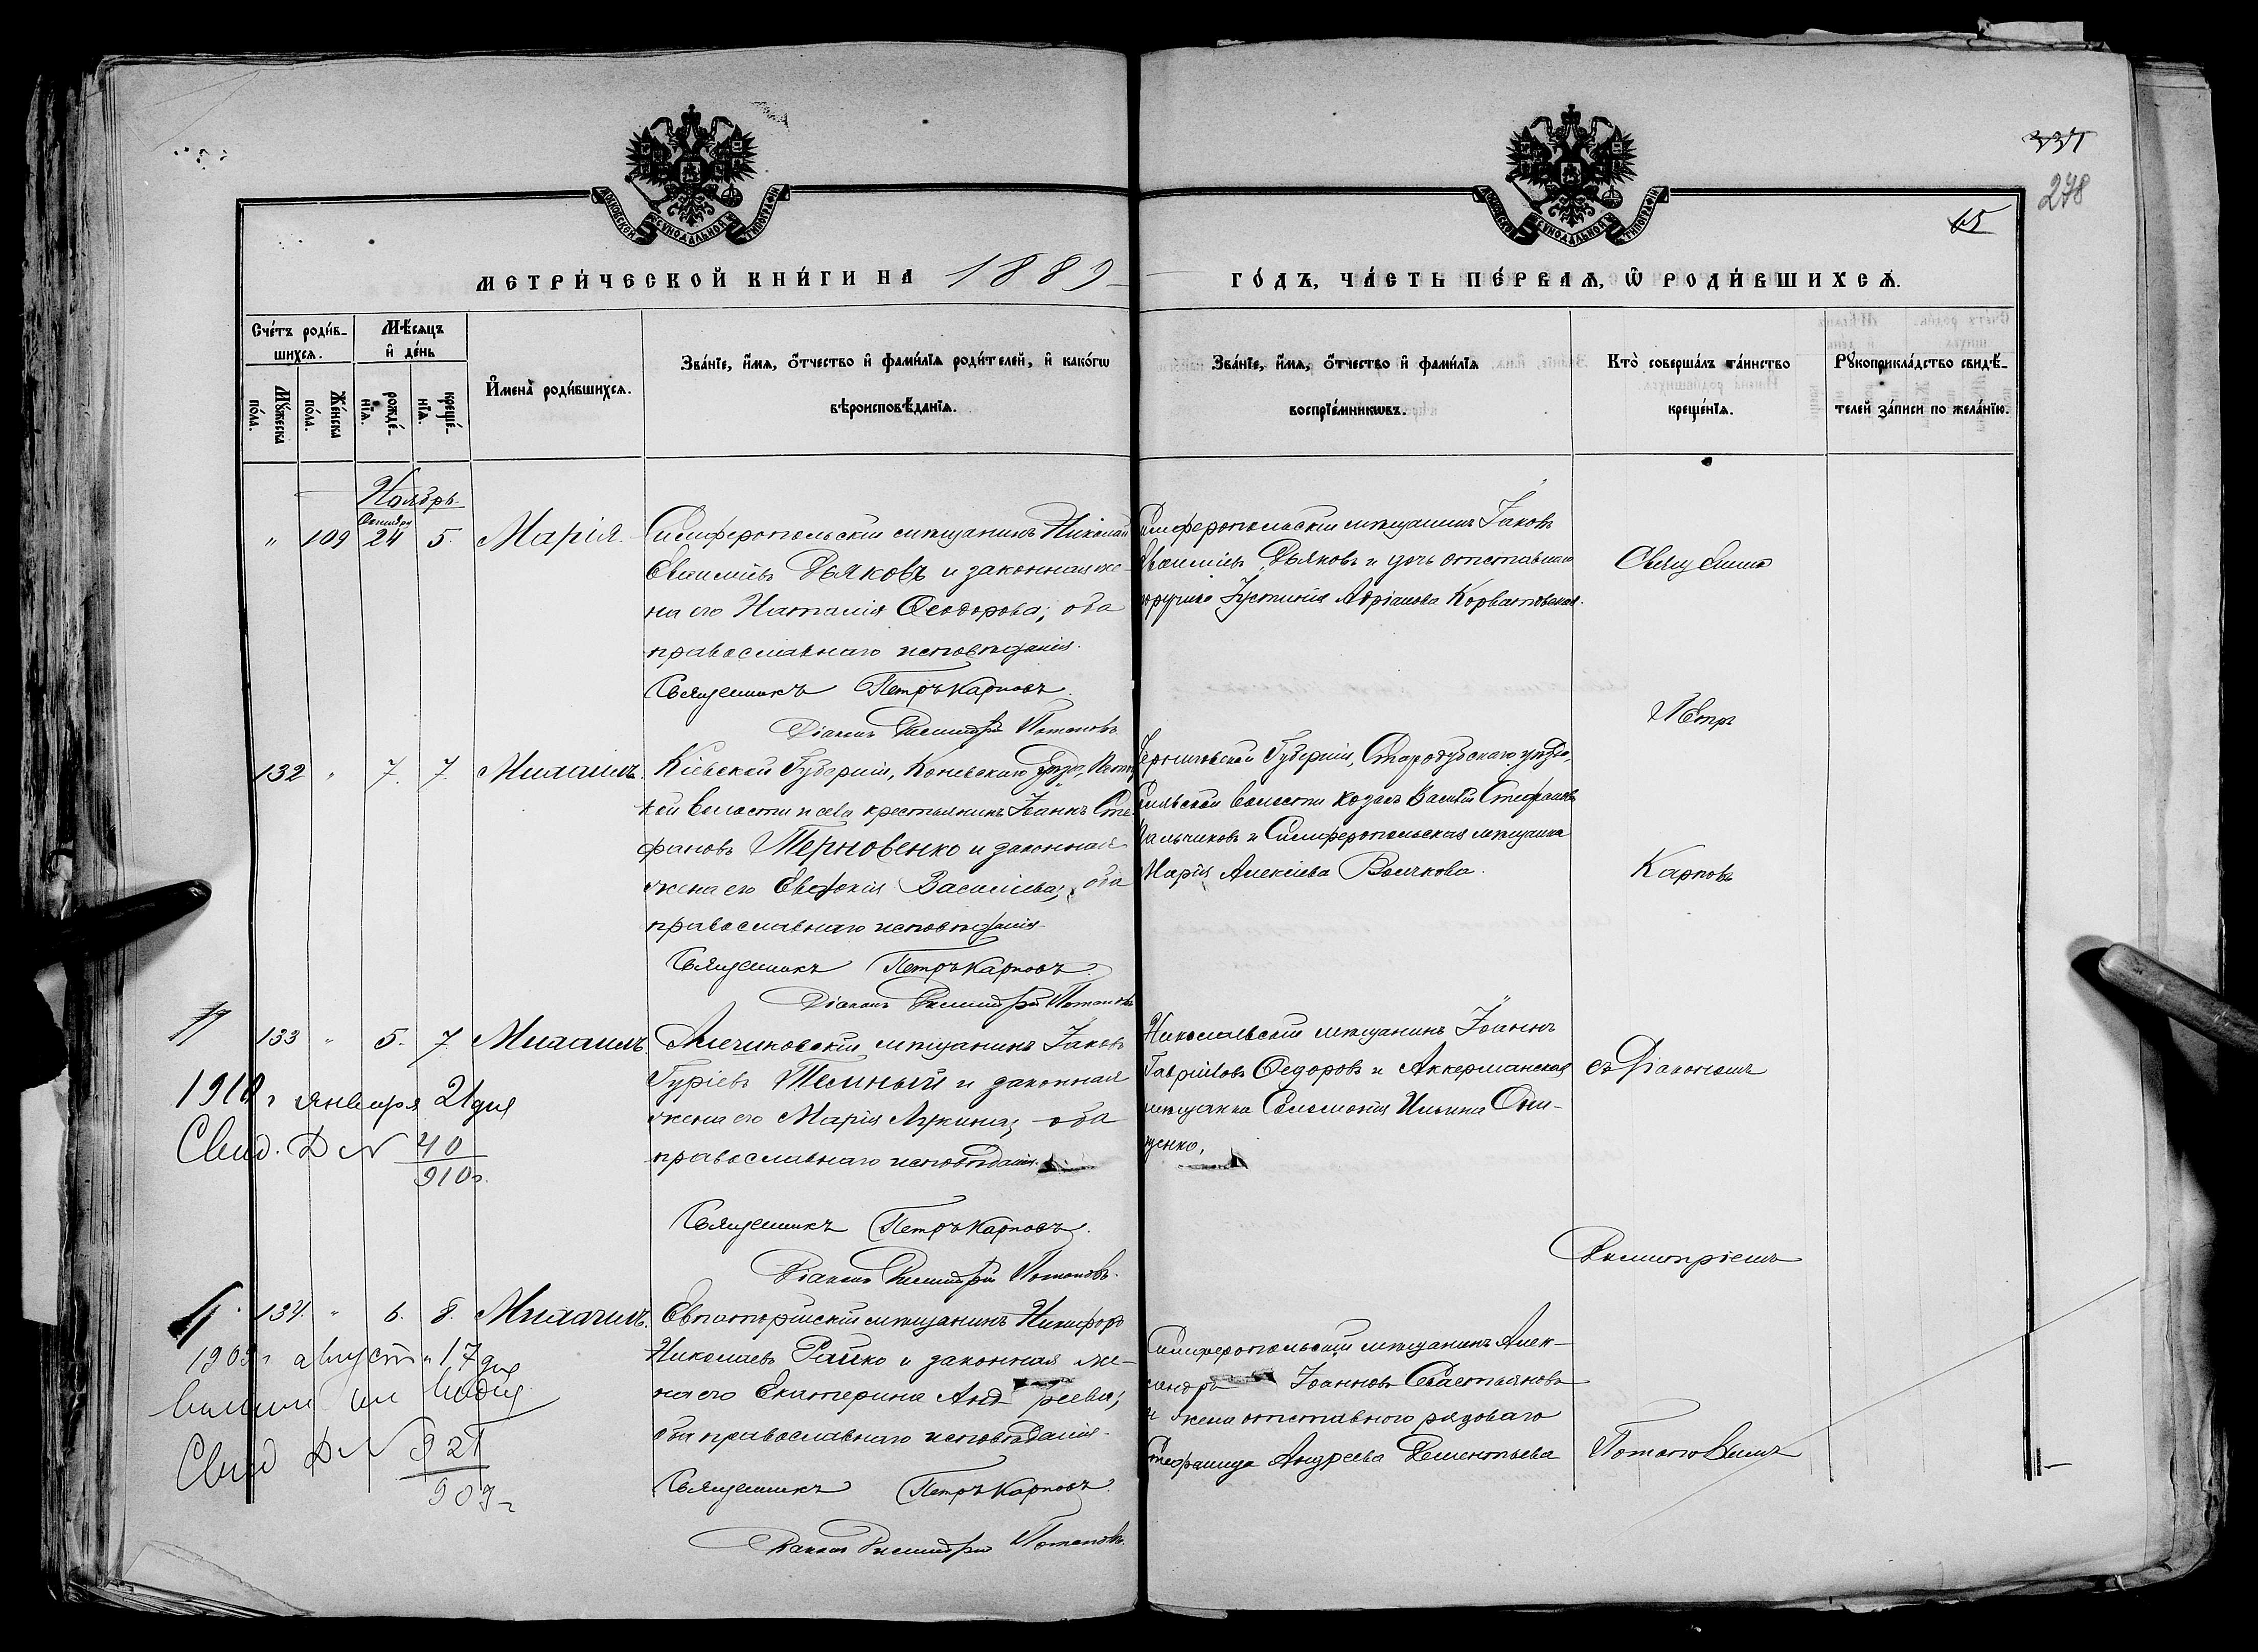 337
278
65
МОСКОВСКОЙ СУНОДАЛЬНОЙ ТИПОГРАФІИ
МОСКОВСКОЙ СУНОДАЛЬНОЙ ТИПОГРАФІИ
МЕТРИ́ЧЕСКОЙ КНИ́ГИ НА 1889 ГО́ДЪ, ЧА́СТЬ ПЕ́РВАѦ, Ѽ РОДИ́ВШИХСѦ.
Сче́тъ роди́в-
шихсѧ.
Мѣ́сѧцъ
и҆ де́нь
Мꙋ́жеска
по́ла.
Же́нска
по́ла.
рожде́-
нїѧ.
креще́-
нїѧ.
И҆мена̀ роди́вшихсѧ.
Зва́нїе, и҆́мѧ, ѻ҆́тчество и҆ фами́лїѧ роди́телей, и҆ како́гѡ
вѣроисповѣ́данїѧ.
Зва́нїе, и҆́мѧ, ѻ҆́тчество и҆ фами́лїѧ
воспрїе́мникѡвъ.
Кто̀ соверша́лъ та́инство
креще́нїѧ.
Рꙋкоприкла́дство свидѣ́-
телей за́писи по жела́нїю.
Ноябрь
Октября
" 109 24 5. Марія.
Симферопольскій мѣщанинъ Николай
Евѳиміевъ Дьяковъ и законная же-
на его Наталія Ѳеодорова; оба
православнаго исповѣданія.
Священникъ Петръ Карповъ.
Діаконъ Димитрій Потаповъ
Симферопольскій мѣщанинъ Іаковъ
Евѳиміевъ Дьяковъ и дочь отставнаго
поручика Іустинія Адріанова
Священникъ
Петръ
132 " 7. 7. Михаилъ.
Кіевской Губерніи, Каневскаго уѣзда,
кой волости и села крестьянинъ Іоаннъ Сте
фановъ Терновенко и законная
жена его Евдокія Василіева; оба
православнаго исповѣданія.
Священникъ Петръ Карповъ.
Діаконъ Димитрій Потаповъ
Черниговской Губерніи, Стародубскаго уѣзда,
волости козакъ Василій Стефановъ
Пальчиковъ и Симферопольская мѣщанка
Марія Алексіева Волчкова.
Карповъ
133 " 5. 7. Михаилъ.
Алешковскій мѣщанинъ Іаковъ
Гуріевъ Темный и законная
жена его Марія Лукина; оба
православнаго исповѣданія.
Священникъ Петръ Карповъ.
Діаконъ Димитрій Потаповъ.
Николаевскій мѣщанинъ Іоаннъ
Гавріиловъ Ѳедоровъ и Аккерманская
мѣщанка Соломонія Ильина Они-
щенко.
съ Діакономъ
Димитріемъ
1910 г января 21 дня
Свид. Д № 40
910 г.
134. " 6. 8. Михаилъ.
Евпаторійскій мѣщанинъ Никифоръ
Николаевъ Райко и законная же-
на его Екатерина Андреева;
оба православнаго исповѣданія.
Священникъ Петръ Карповъ.
Діаконъ Димитрій Потаповъ.
Симферопольскій мѣщанинъ Алек-
сандръ Іоанновъ Севастьяновъ
и жена отставного рядоваго
Стефанида Андреева Дементьева
Потаповымъ
1909 г август 17 дня
Свид Д № 921
909 г